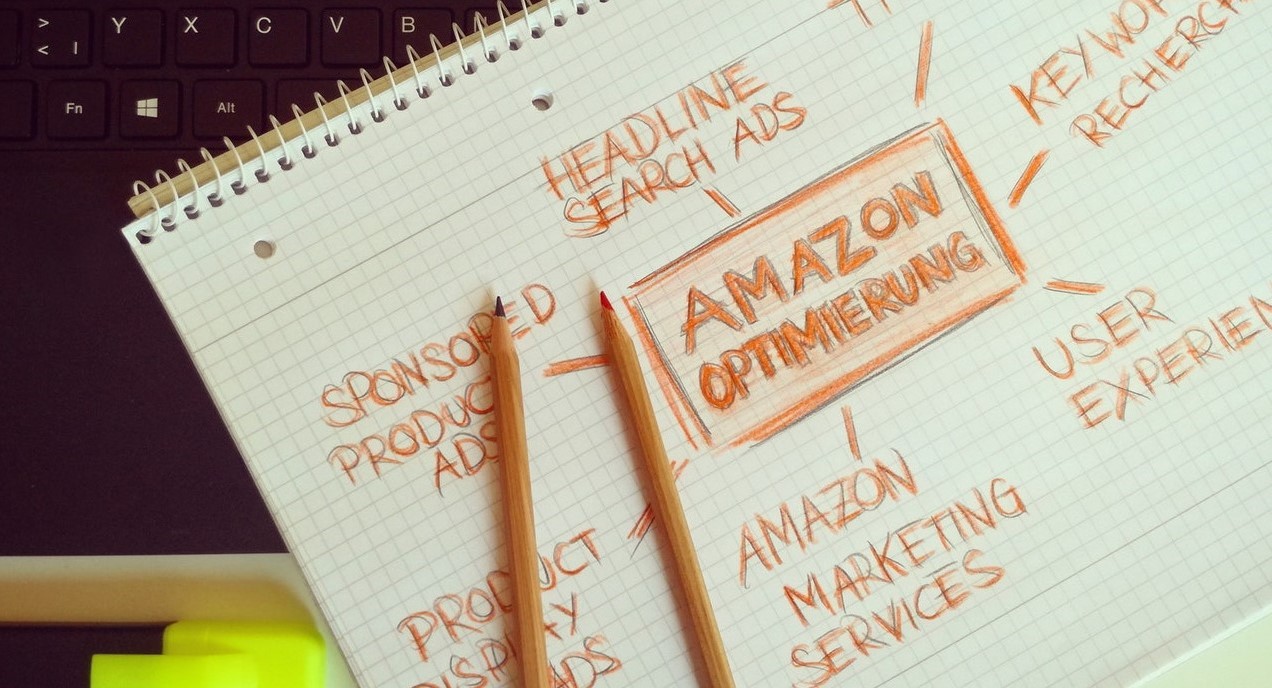 > Y X C V B
< |
Fn Alt
HEADLINE
SEARCH ADS
KEYWOR
RECHERCH
AMAZON
OPTIMIERUNG
SPONSORED
PRODUCT
ADS
USER
EXPERIEN
AMAZON
MARKETING
SERVICES
PRODUCT
DISPLAY
ADS